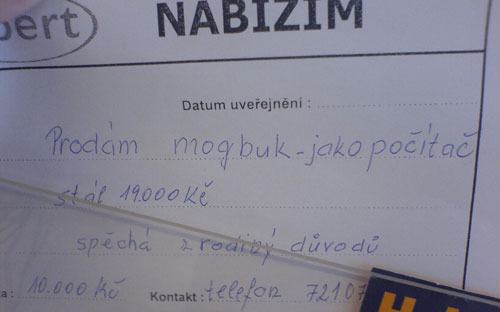 bert NABÍZÍM
Datum uveřejnění :
Prodám mogbuk-jako počítač
stál 19.000 Kč
spěchá z rodiný důvodů
a : 10.000 Kč Kontakt : telefon 72107
H